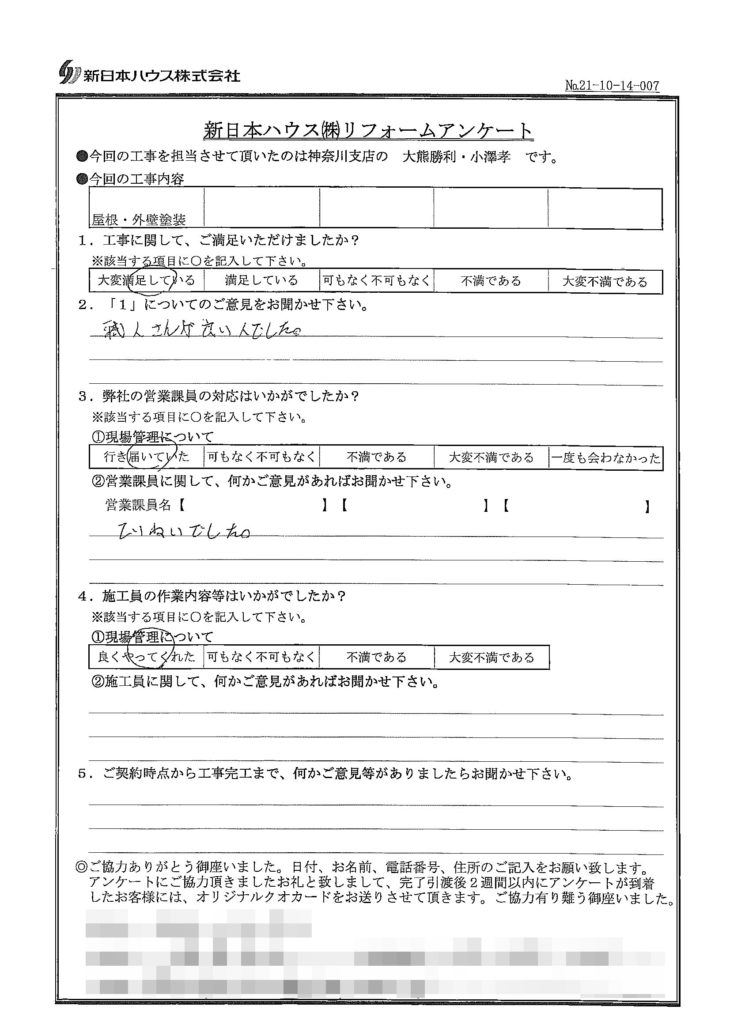 新日本ハウス株式会社
№21-10-14-007
新日本ハウス㈱リフォームアンケート
●今回の工事を担当させて頂いたのは神奈川支店の 大熊勝利・小澤孝 です。
●今回の工事内容
屋根・外壁塗装
1．工事に関して、ご満足いただけましたか？
※該当する項目に○を記入して下さい。
大変満足している 満足している 可もなく不可もなく 不満である 大変不満である
2．「1」についてのご意見をお聞かせ下さい。
職人さんが良い人でした。
3．弊社の営業課員の対応はいかがでしたか？
※該当する項目に○を記入して下さい。
①現場管理について
行き届いていた 可もなく不可もなく 不満である 大変不満である 一度も会わなかった
②営業課員に関して、何かご意見があればお聞かせ下さい。
営業課員名【 】【 】【 】
ていねいでした。
4．施工員の作業内容等はいかがでしたか？
※該当する項目に○を記入して下さい。
①現場管理について
良くやってくれた 可もなく不可もなく 不満である 大変不満である
②施工員に関して、何かご意見があればお聞かせ下さい。
5．ご契約時点から工事完工まで、何かご意見等がありましたらお聞かせ下さい。
◎ご協力ありがとう御座いました。日付、お名前、電話番号、住所のご記入をお願い致します。
アンケートにご協力頂きましたお礼と致しまして、完了引渡後2週間以内にアンケートが到着
したお客様には、オリジナルクオカードをお送りさせて頂きます。ご協力有り難う御座いました。